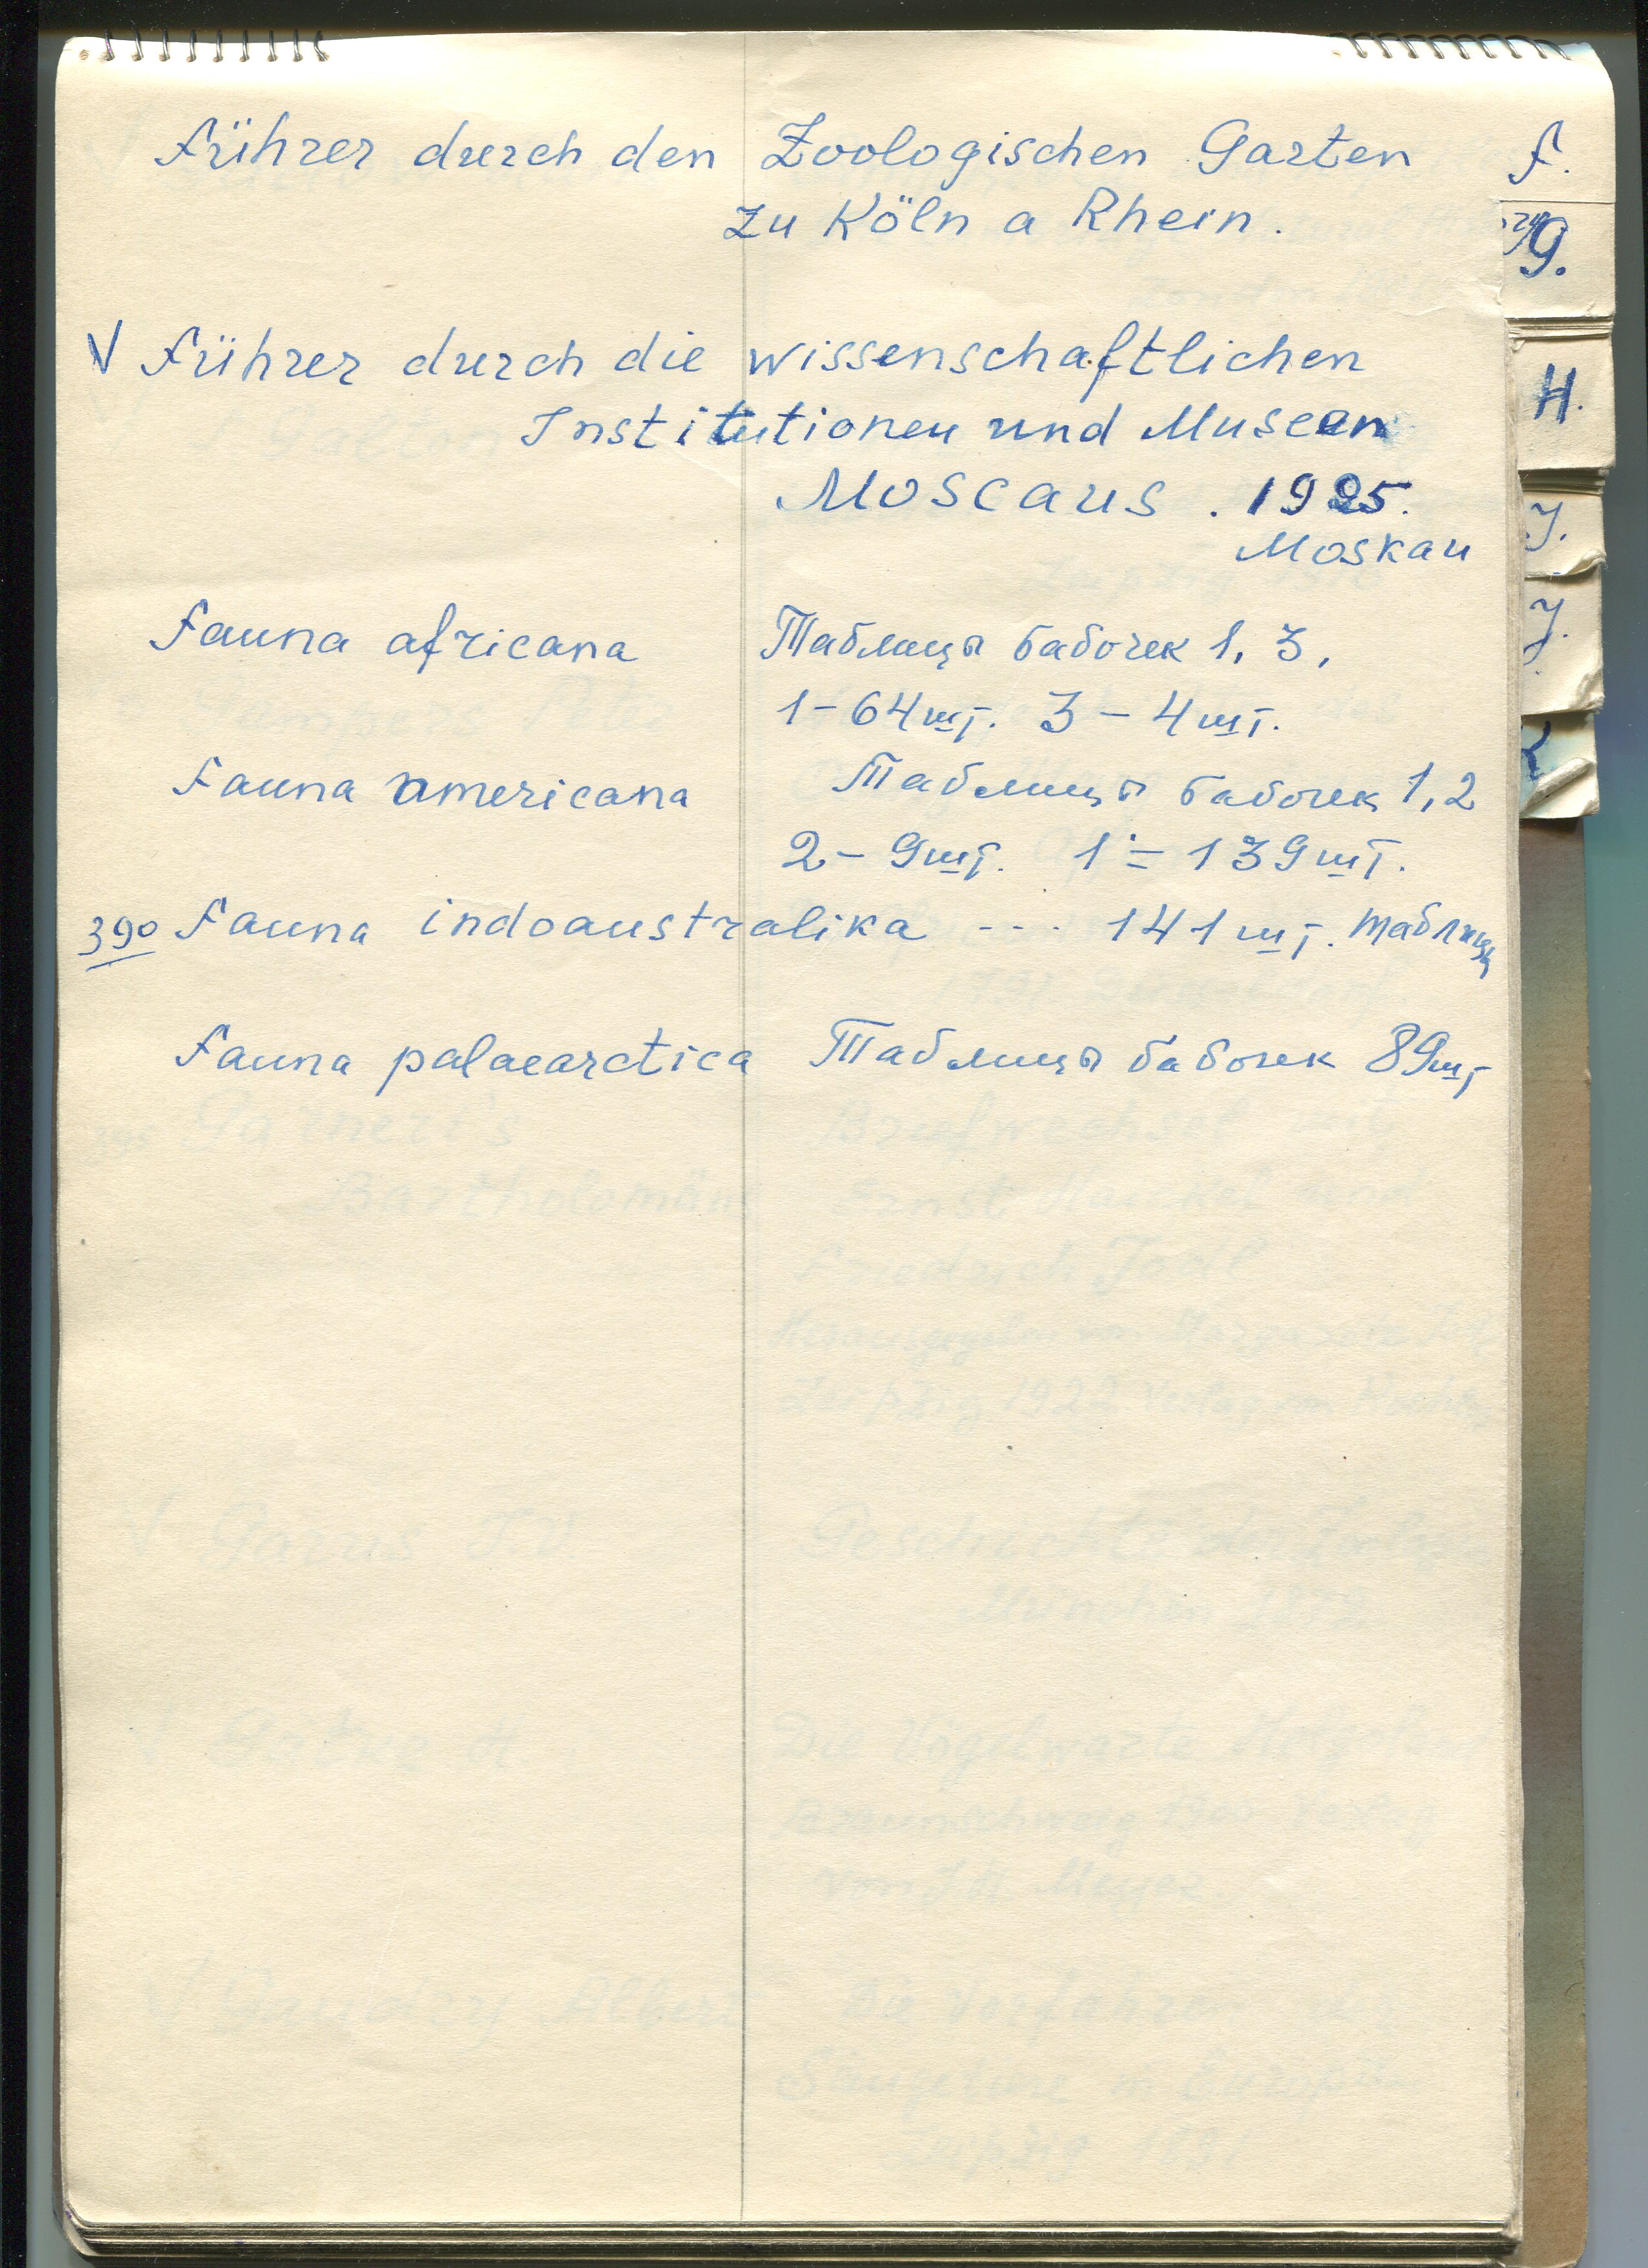 Führer durch den Zoologischen Garten
zu Köln a Rhein.
V Führer durch die wissenschaftlichen
Institutionen und Museen
Moscaus. 1925.
Moskau
Fauna africana Таблицы бабочек 1, 3,
1-64шт. 3-4шт.
Fauna americana Таблицы бабочек 1,2
2-9шт. 1-139шт.
390 Fauna indoaustralika --- 141шт. таблицы
Fauna palaearctica Таблицы бабочек 89шт
F.
G.
H.
J.
J.